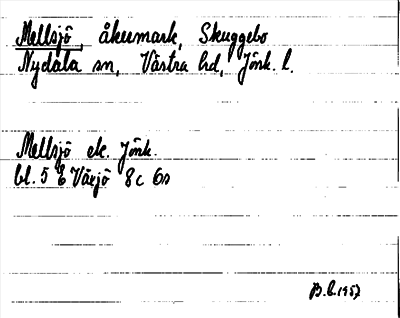 Mellsjö, åkermark, Skuggebo
Nydala sn, Västra hd, Jönk. l.
Mellsjö ek. Jönk.
bl. 5 E Växjö 8c 6s
B.L. 1957